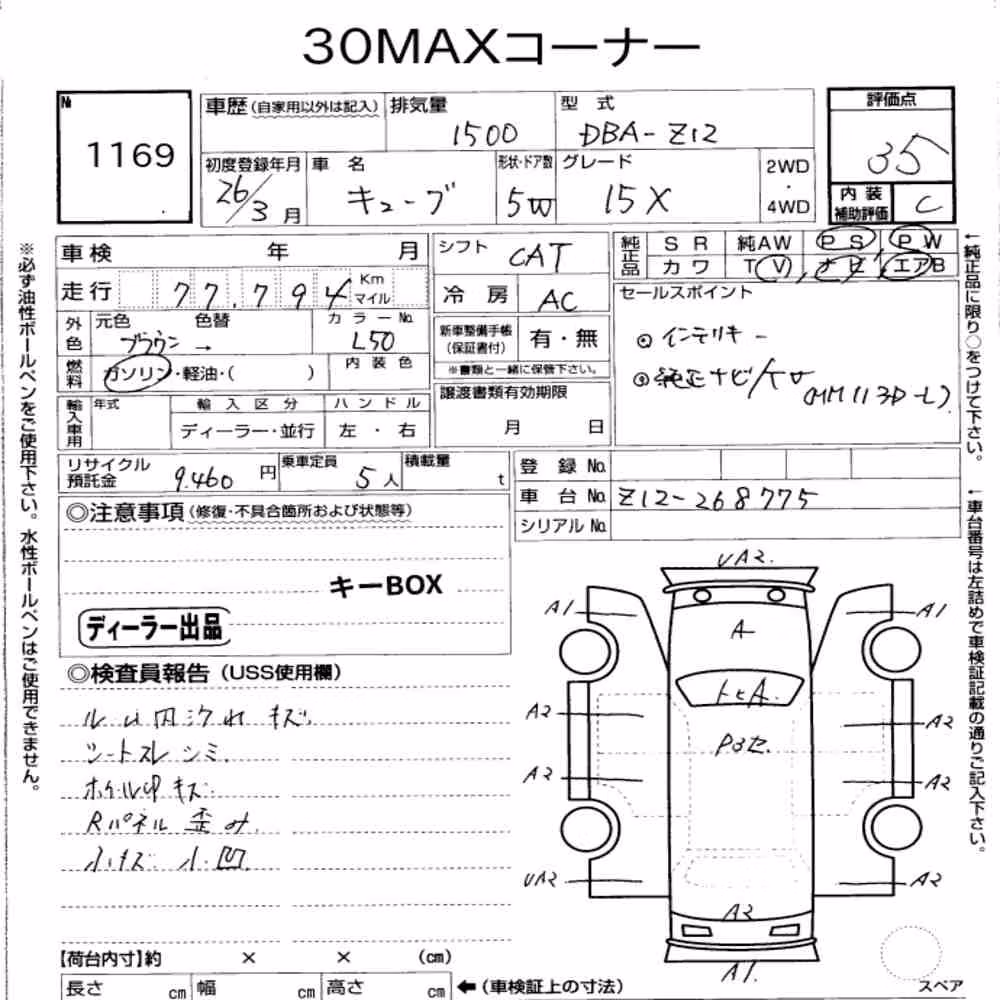 30MAXコーナー
№ 1169
車歴(自家用以外は記入) 排気量 1500 型式 DBA-Z12
評価点 35
初度登録年月 26/3月 車名 キューブ 形状・ドア数 5W グレード 15X 2WD・4WD
内装補助評価 C
車検 年 月
シフト CAT
純正品 SR 純AW PS PW
カワ TV ナビ エアB
走行 77,794 Km マイル
冷房 AC
セールスポイント
◎インテリキー
◎純正ナビ/
(MM113D-L)
外色 元色 ブラウン → 色替 カラーNo. L50
新車整備手帳(保証書付) 有・無
※書類と一緒に保管下さい。
燃料 ガソリン・軽油・( ) 内装色
譲渡書類有効期限
月 日
輸入車用 年式 輸入区分 ハンドル
ディーラー・並行 左・右
リサイクル預託金 9.460円 乗車定員 5人 積載量 t
登録No.
車台No. Z12-268775
シリアルNo.
◎注意事項(修復・不具合箇所および状態等)
キーBOX
ディーラー出品
◎検査員報告(USS使用欄)
内汚れ キズ
シートスレ シミ.
キズ
Rパネル 歪み.
小キズ 小凹
【荷台内寸】約 × × (cm)
長さ cm 幅 cm 高さ cm ←(車検証上の寸法)
UA2.
A1
A1
A
A
A2
A2
A2
A2
UA2
A2
A2
A1.
スペア
※必ず油性ボールペンをご使用下さい。水性ボールペンはご使用できません。
←純正品に限り○をつけて下さい。
←車台番号は左詰めで車検証記載の通りご記入下さい。